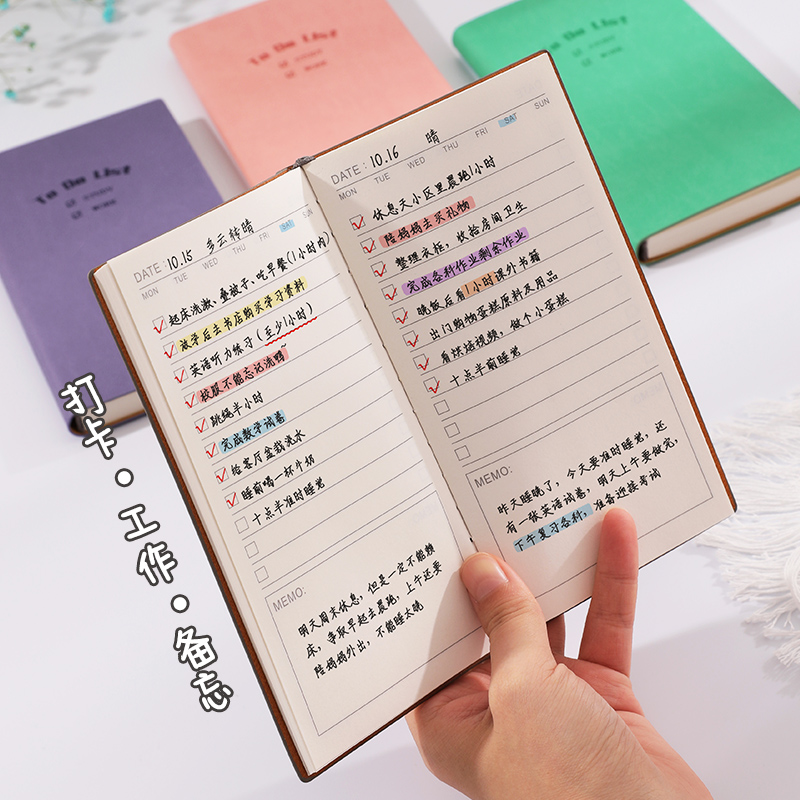 To Do List
STUDY
WORK
To Do List
STUDY
WORK
To Do List
STUDY
WORK
DATE: 10.15 多云转晴
MON TUE WED THU FRI SAT SUN
起床洗漱、叠被子、吃早餐(1小时内)
放学后去书店购买学习资料
英语听力练习(至少1小时)
校服不能忘记洗哦~
跳绳半小时
完成数学试卷
给客厅盆栽浇水
睡前喝一杯牛奶
十点半准时睡觉
MEMO:
明天周末休息，但是一定不能赖
床，争取早起去晨跑，上午还要
陪妈妈外出，不能睡太晚
DATE: 10.16 晴
MON TUE WED THU FRI SAT SUN
休息天小区里晨跑1小时
陪妈妈去买礼物
整理衣柜，收拾房间卫生
完成各科作业剩余作业
晚饭后看1小时课外书籍
出门购物蛋糕原料及用品
看烘焙视频，做个小蛋糕
十点半前睡觉
MEMO:
昨天睡晚了，今天要准时睡觉，还
有一张英语试卷，明天上午要做完，
下午复习各科，准备迎接考试
打卡·工作·备忘